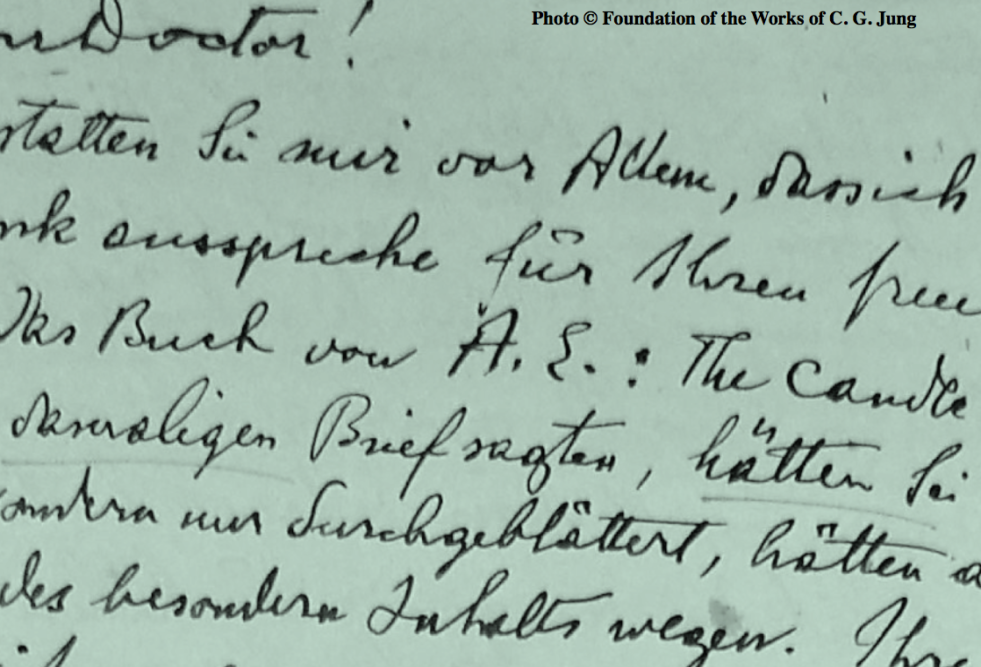 Photo © Foundation of the Works of C. G. Jung
Doctor!
statten Sie mir vor Allem, dass ich
nk ausspreche für Ihren freu
Das Buch von A. E.: The Candle
damaligen Brief sagten, hätten Sie
sondern nur durchgeblättert, hätten a
des besondern Inhalts wegen. Ihre